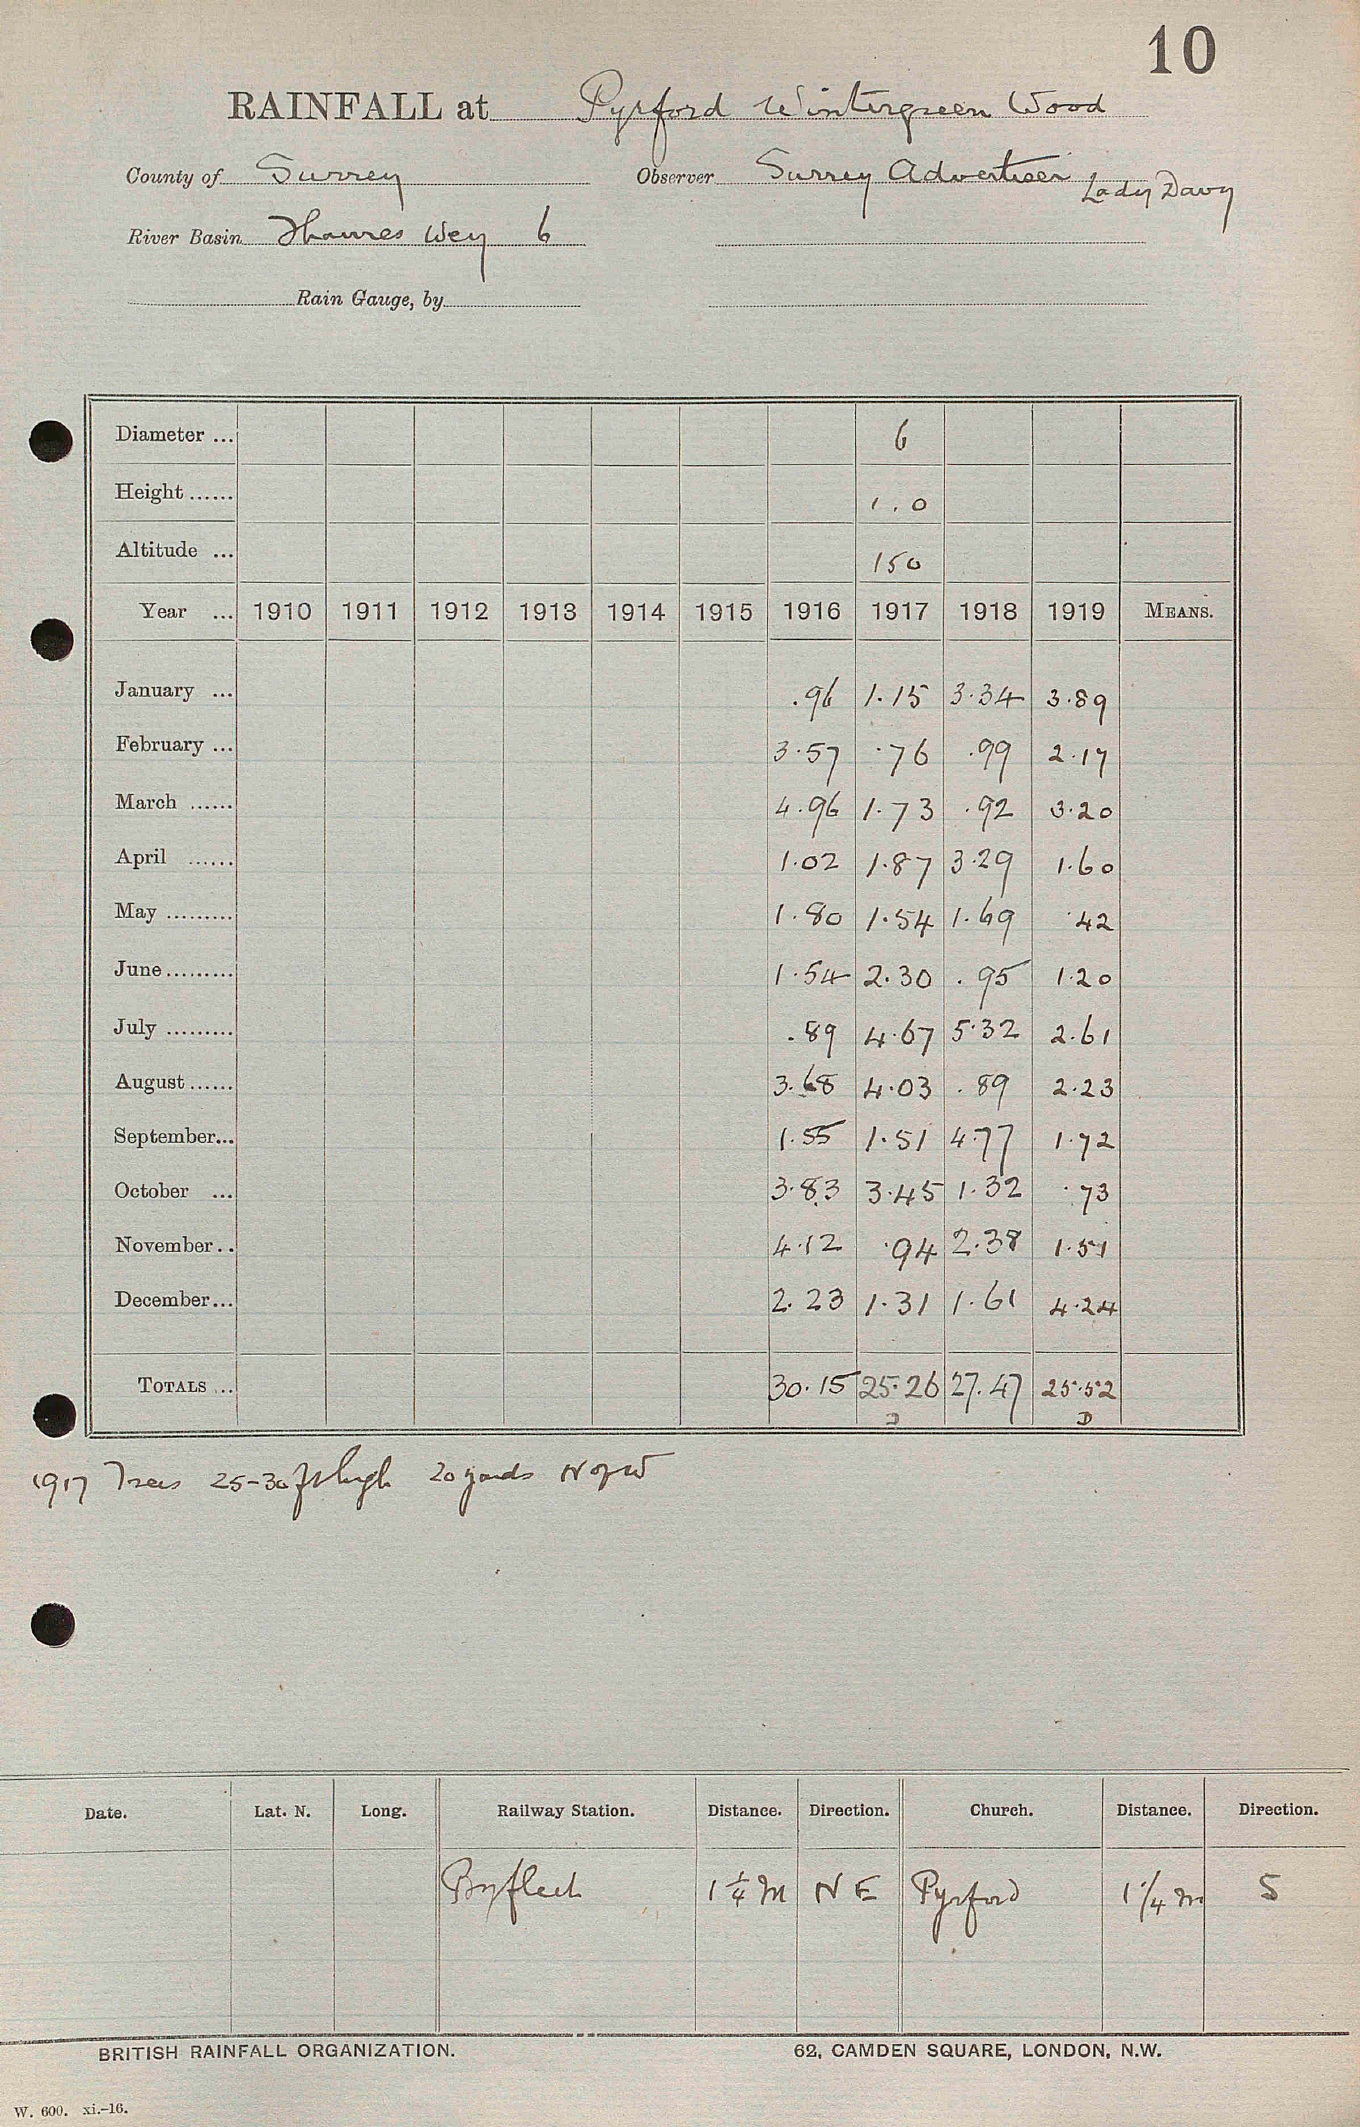 10
RAINFALL at Pyrford Wintergreen Wood
County of Surrey Observer Surrey Advertiser Lady Davy
River Basin Thames Wey 6
Rain Gauge, by
Diameter ... 6
Height ...... 1.0
Altitude ... 150
Year ... 1910 1911 1912 1913 1914 1915 1916 1917 1918 1919 MEANS.
January ... .96 1.15 3.34 3.89
February ... 3.57 .76 .99 2.17
March ...... 4.96 1.73 .92 3.20
April ...... 1.02 1.87 3.29 1.60
May ......... 1.80 1.54 1.69 .42
June ......... 1.54 2.30 .95 1.20
July ......... .89 4.67 5.32 2.61
August ...... 3.68 4.03 .89 2.23
September... 1.55 1.51 4.77 1.72
October ... 3.83 3.45 1.32 .73
November.. 4.12 .94 2.38 1.51
December... 2.23 1.31 1.61 4.24
TOTALS ... 30.15 25.26 27.47 25.52
D D
1917 Trees 25-30 ft high 20 yards N of W
Date. Lat. N. Long. Railway Station. Distance. Direction. Church. Distance. Direction.
Byfleet 1 1/4 M N E Pyrford 1 1/4 m S
BRITISH RAINFALL ORGANIZATION. 62, CAMDEN SQUARE, LONDON, N.W.
W. 600. xi.-16.